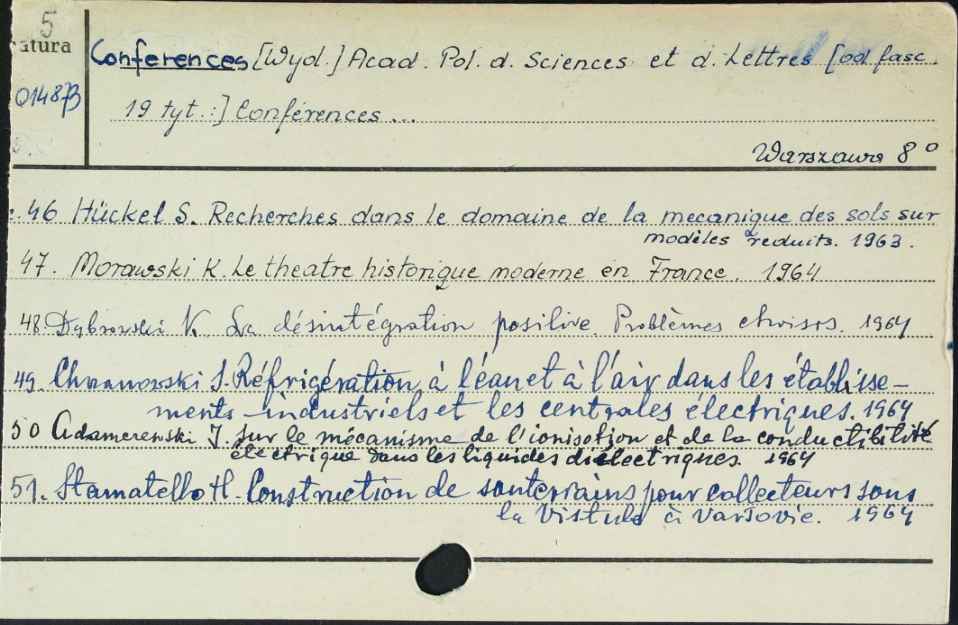 5
atura
Conferences [Wyd.] Acad. Pol. d. Sciences et d. Lettres [od fasc.
01487B
19 tyt.:] Conférences ...
Warszawa 8°
46 Hückel S. Recherches dans le domaine de la mecanique des sols sur
modèles reduits. 1963.
47. Morawski K. Le theatre historique moderne en France. 1964
48. Dąbrowski K. La désintégration positive. Problèmes choisis. 1964
49. Chwanowski S. Réfrigération à l'eau et à l'air dans les établisse-
ments industriels et les centrales électriques. 1964
50 Adamczewski J. Sur le mécanisme de l'ionisation et de la conductibilité
électrique dans les liquides diélectriques. 1964
51. Stamatello H. Construction de souterrains pour collecteurs sous
la Vistule à Varsovie. 1964